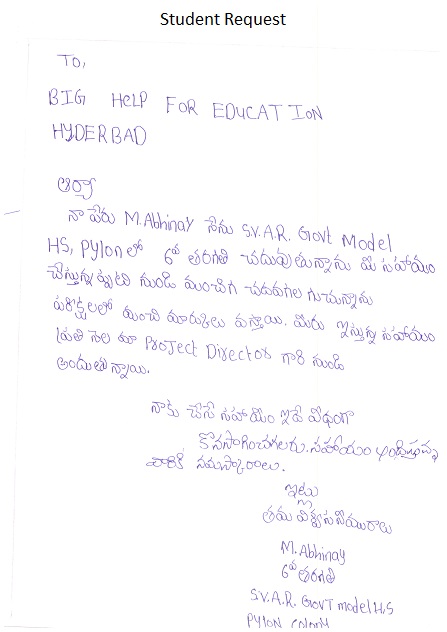 Student Request
TO,
BIG HELP FOR EDUCATION
HYDERBAD
ఆర్యా
నా పేరు M.Abhinay నేను S.V.A.R. Govt Model
HS, Pylon లో 6వ తరగతి చదువుతున్నాను మీ సహాయం
చేస్తున్నప్పటి నుండి మంచిగ చదవగలుగుచున్నాను
పరీక్షలలో మంచి మార్కులు వస్తాయి. మీరు ఇస్తున్న సహాయం
ప్రతి నెల మా Project Director గారి నుండి
అందుతున్నాయి.
నాకు చేసే సహాయం ఇదే విధంగా
కొనసాగించగలరు. సహాయం అందిస్తున్న
వారికి నమస్కారాలు.
ఇట్లు
తమ విశ్వసనీయురాలు
M. Abhinay
6వ తరగతి
S.V.A.R. GovT model H.S
Pylon colony